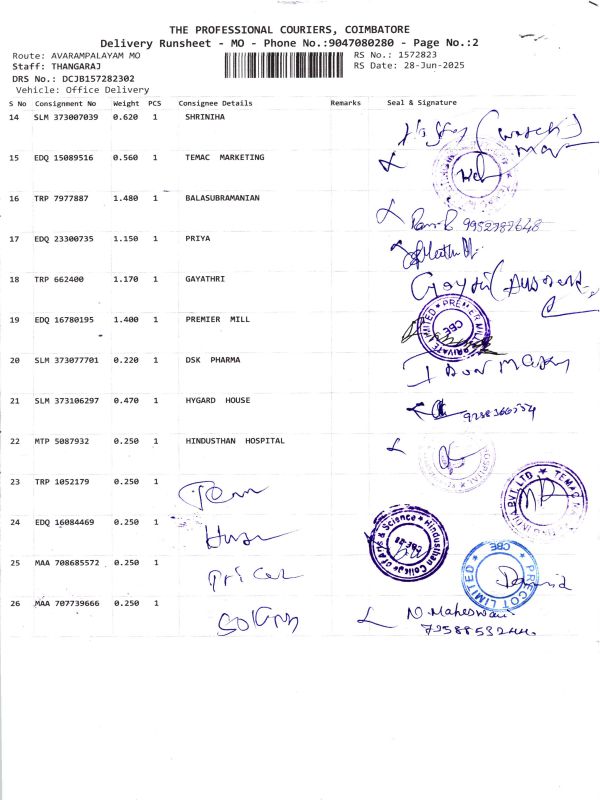 THE PROFESSIONAL COURIERS, COIMBATORE
Delivery Runsheet - MO - Phone No.:9047080280 - Page No.:2
Route: AVARAMPALAYAM MO
RS No.: 1572823
Staff: THANGARAJ
RS Date: 28-Jun-2025
DRS No.: DCJB157282302
Vehicle: Office Delivery
S No Consignment No Weight PCS Consignee Details Remarks Seal & Signature
14 SLM 373007039 0.620 1 SHRINIHA
15 EDQ 15089516 0.560 1 TEMAC MARKETING
16 TRP 7977887 1.480 1 BALASUBRAMANIAN
9952787648
17 EDQ 23300735 1.150 1 PRIYA
18 TRP 662400 1.170 1 GAYATHRI
19 EDQ 16780195 1.400 1 PREMIER MILL
CBE
20 SLM 373077701 0.220 1 DSK PHARMA
21 SLM 373106297 0.470 1 HYGARD HOUSE
22 MTP 5087932 0.250 1 HINDUSTHAN HOSPITAL
23 TRP 1052179 0.250 1
24 EDQ 16084469 0.250 1
Hindusthan College of Arts & Science
25 MAA 708685572 0.250 1
PRECOT LIMITED
CBE
26 MAA 707739666 0.250 1
N. Maheswari